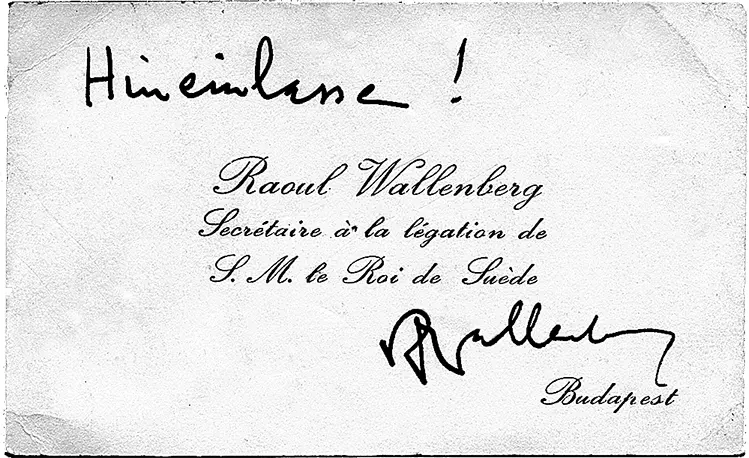 Hineinlassen !
Raoul Wallenberg
Secrétaire à la légation de
S. M. le Roi de Suède
R Wallenberg
Budapest